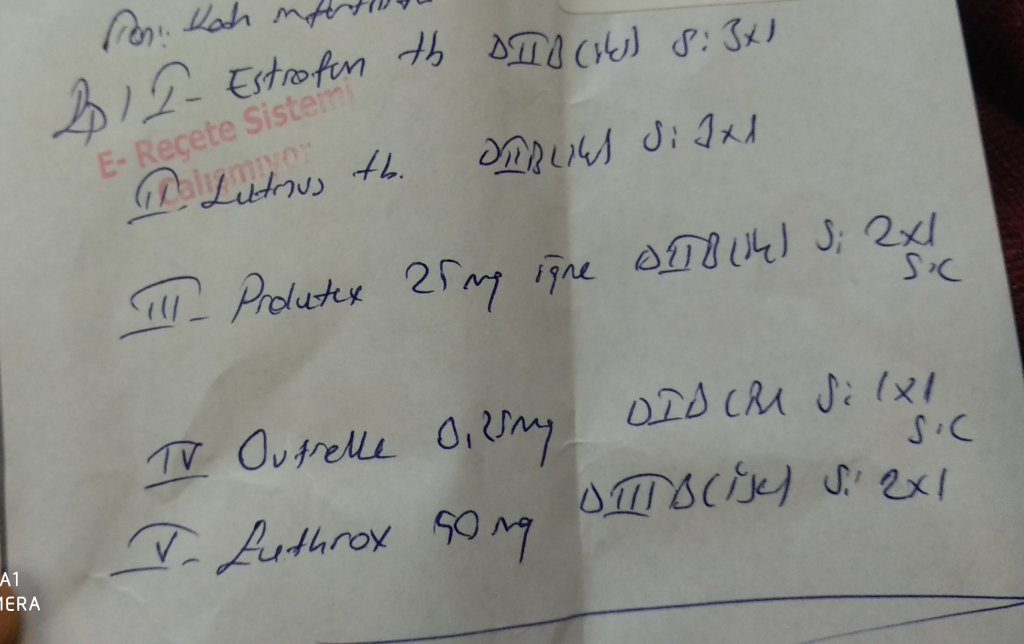 Tanı: Kadın infertilitesi
Rp/ I- Estrofem tb DIIB (iki) S: 3x1
E- Reçete Sistemi
Çalışmıyor
II- Lutinus tb. DIIB (iki) S: 3x1
III- Prolutex 25 mg iğne DIIB (iki) S: 2x1
S.C
IV Ovitrelle 0,25mg DID (Bir) S: 1x1
S.C
V- Euthrox 50 mg DIIID (üç) S: 2x1
A1
MERA